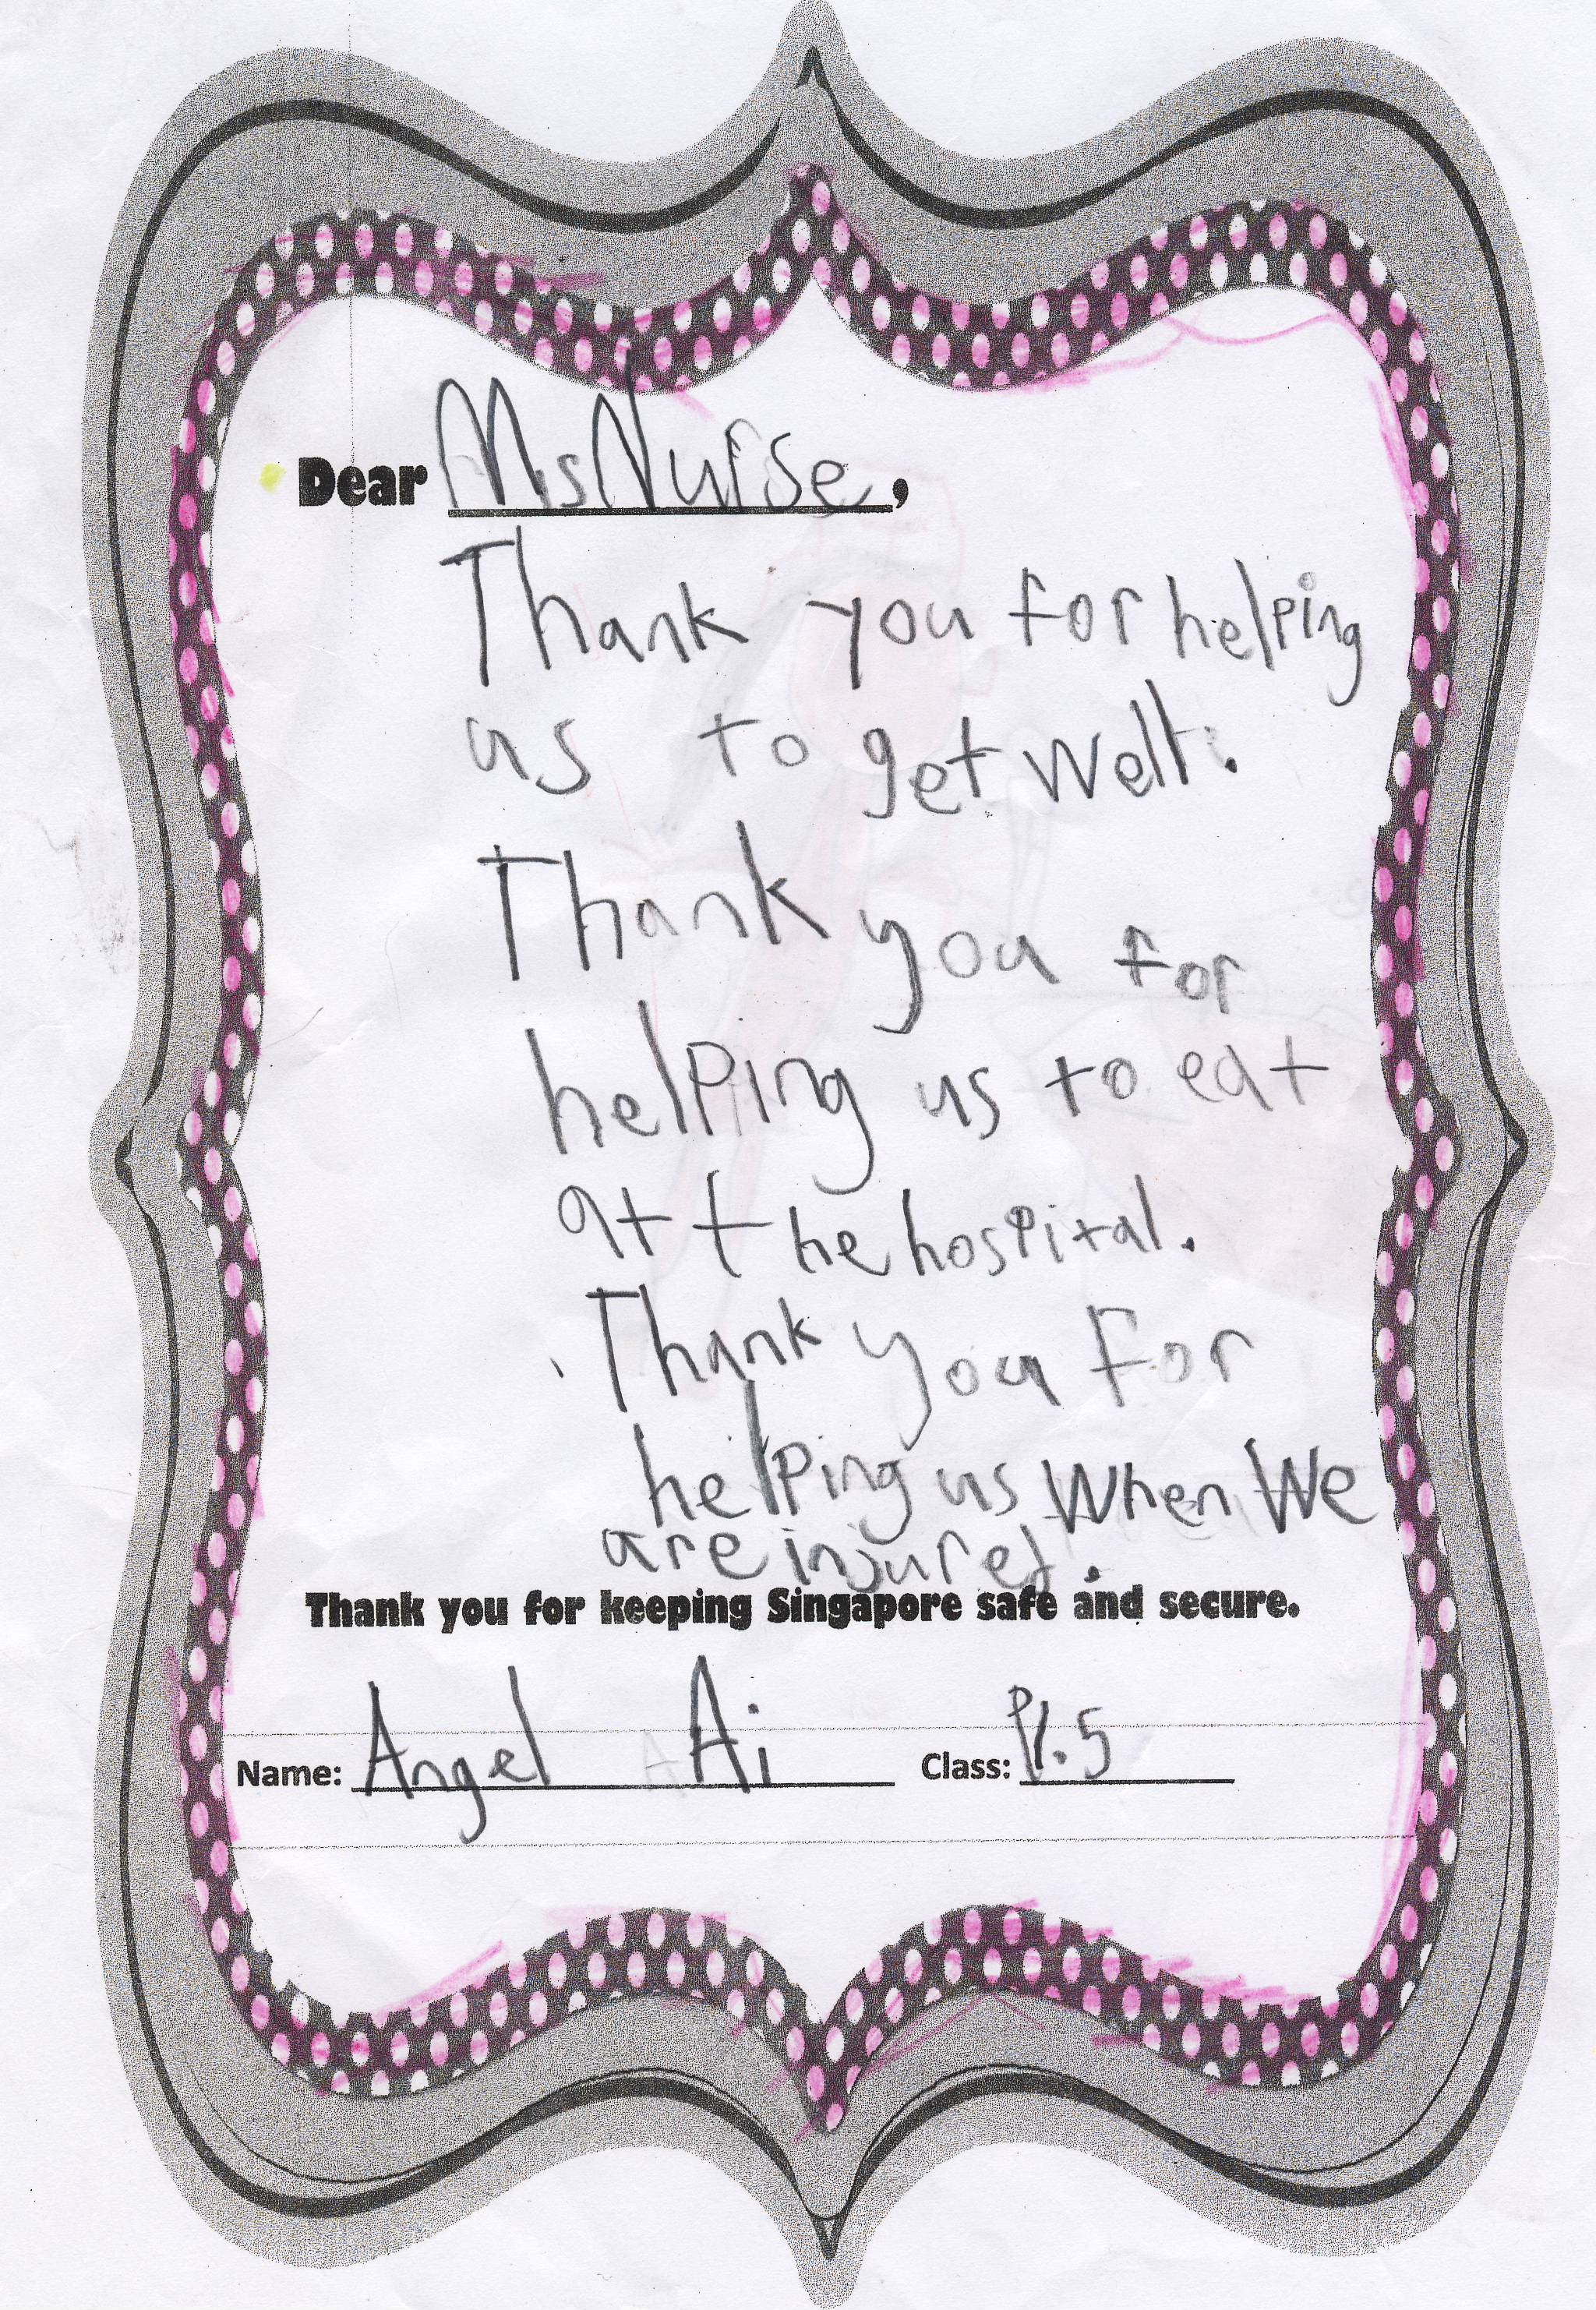 Dear Ms Nurse,
Thank you for helping
us to get well.
Thank you for
helping us to eat
at the hospital.
Thank you for
helping us when we
are injured.
Thank you for keeping Singapore safe and secure.
Name: Angel Ai Class: P1.5